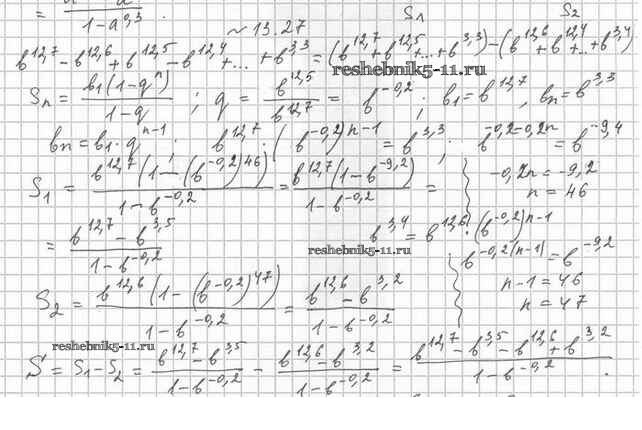 = 1-a^0,3 .
~ 13.27
S1 S2
b^12,7 - b^12,6 + b^12,5 - b^12,4 + ... + b^3,3 = (b^12,7 + b^12,5 + ... + b^3,3) - (b^12,6 + b^12,4 + ... + b^3,4)
reshebnik5-11.ru
Sn = b1(1-q^n) / 1-q ; q = b^12,5 / b^12,7 = b^-0,2 ; b1 = b^12,7 , bn = b^3,3
bn = b1·q^n-1 ; b^12,7 · (b^-0,2)^n-1 = b^3,3 ; b^-0,2-0,2n = b^-9,4
S1 = b^12,7 (1-(b^-0,2)^46) / 1-b^-0,2 = b^12,7 (1-b^-9,2) / 1-b^-0,2 =
-0,2n = -9,2
n = 46
= b^12,7 - b^3,5 / 1-b^-0,2
b^3,4 = b^12,6 · (b^-0,2)^n-1
reshebnik5-11.ru
b^-0,2(n-1) = b^-9,2
n-1 = 46
n = 47
S2 = b^12,6 (1-(b^-0,2)^47) / 1-b^-0,2 = b^12,6 - b^3,2 / 1-b^-0,2
reshebnik5-11.ru
S = S1-S2 = b^12,7 - b^3,5 / 1-b^-0,2 - b^12,6 - b^3,2 / 1-b^-0,2 = b^12,7 - b^3,5 - b^12,6 + b^3,2 / 1-b^-0,2 .